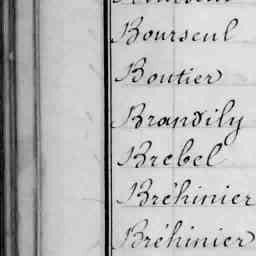 Bourseul
Boutier
Brandily
Brebel
Bréhinier
Bréhinier